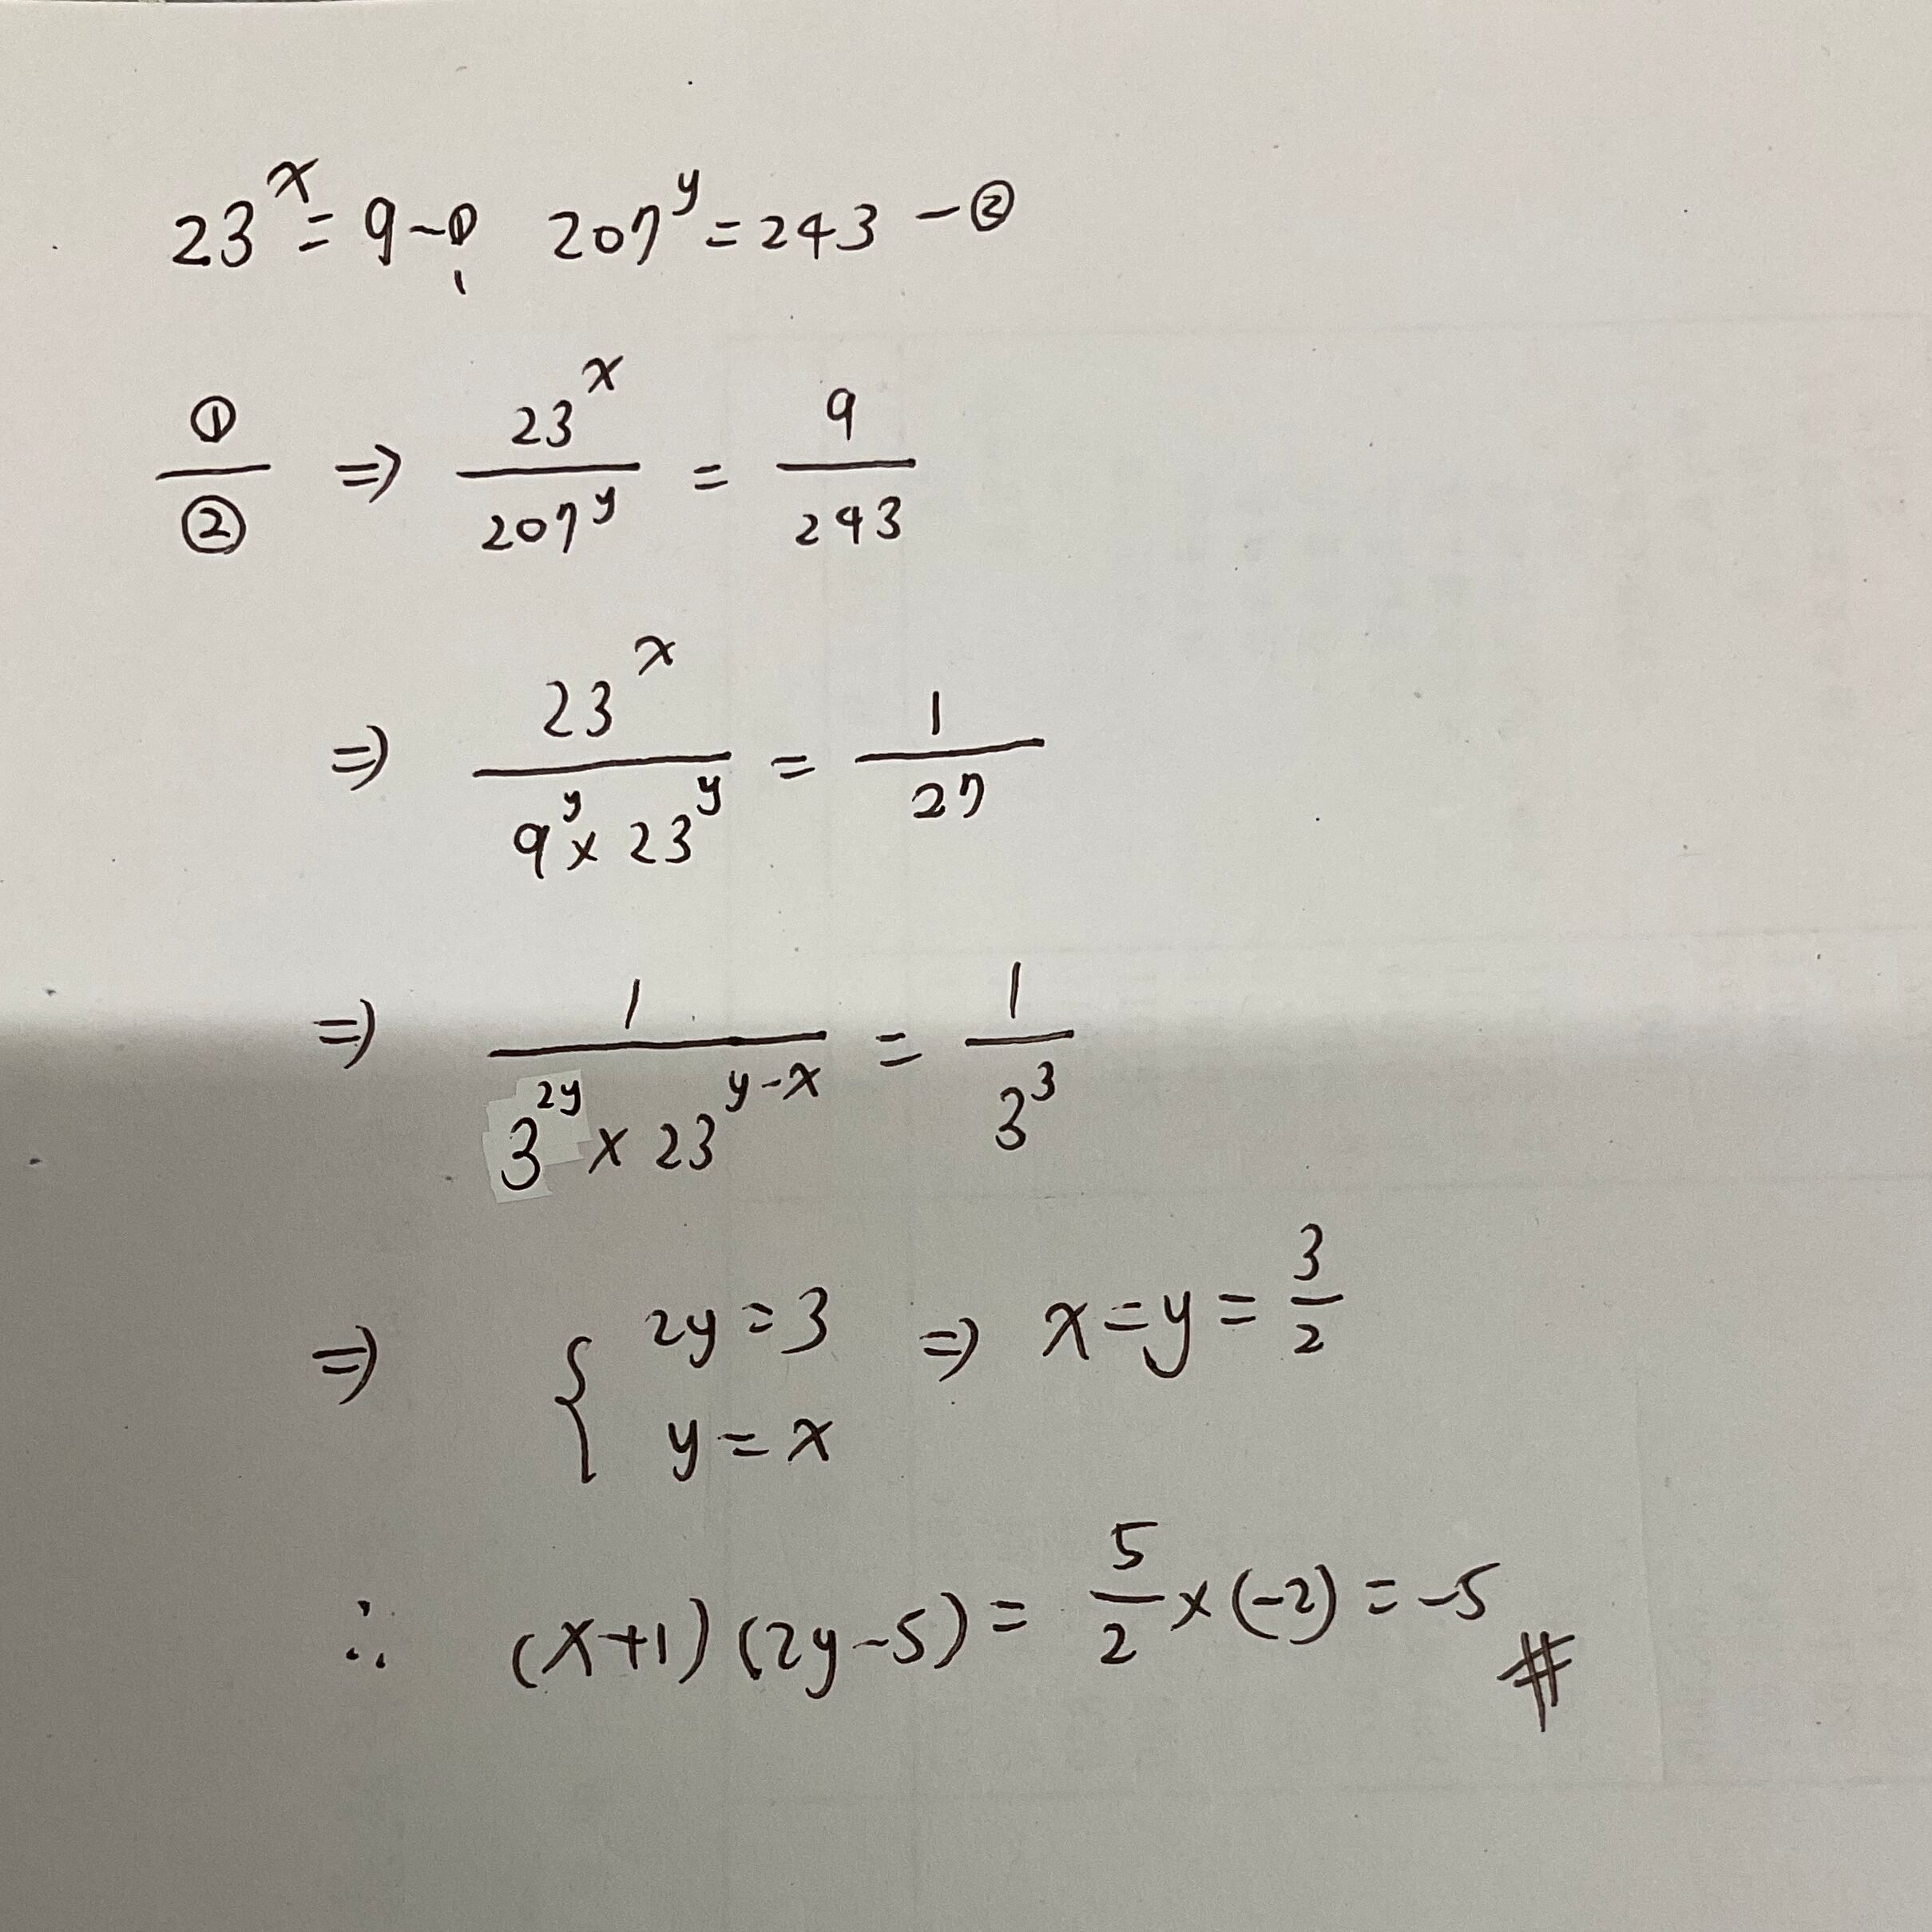 23^x = 9 -① 207^y = 243 -②
①/② ⇒ 23^x / 207^y = 9/243
⇒ 23^x / (9^y × 23^y) = 1/27
⇒ 1 / (3^{2y} × 23^{y-x}) = 1/3^3
⇒ { 2y = 3 ⇒ x = y = 3/2
y = x
∴ (x+1)(2y-5) = 5/2 × (-2) = -5 #